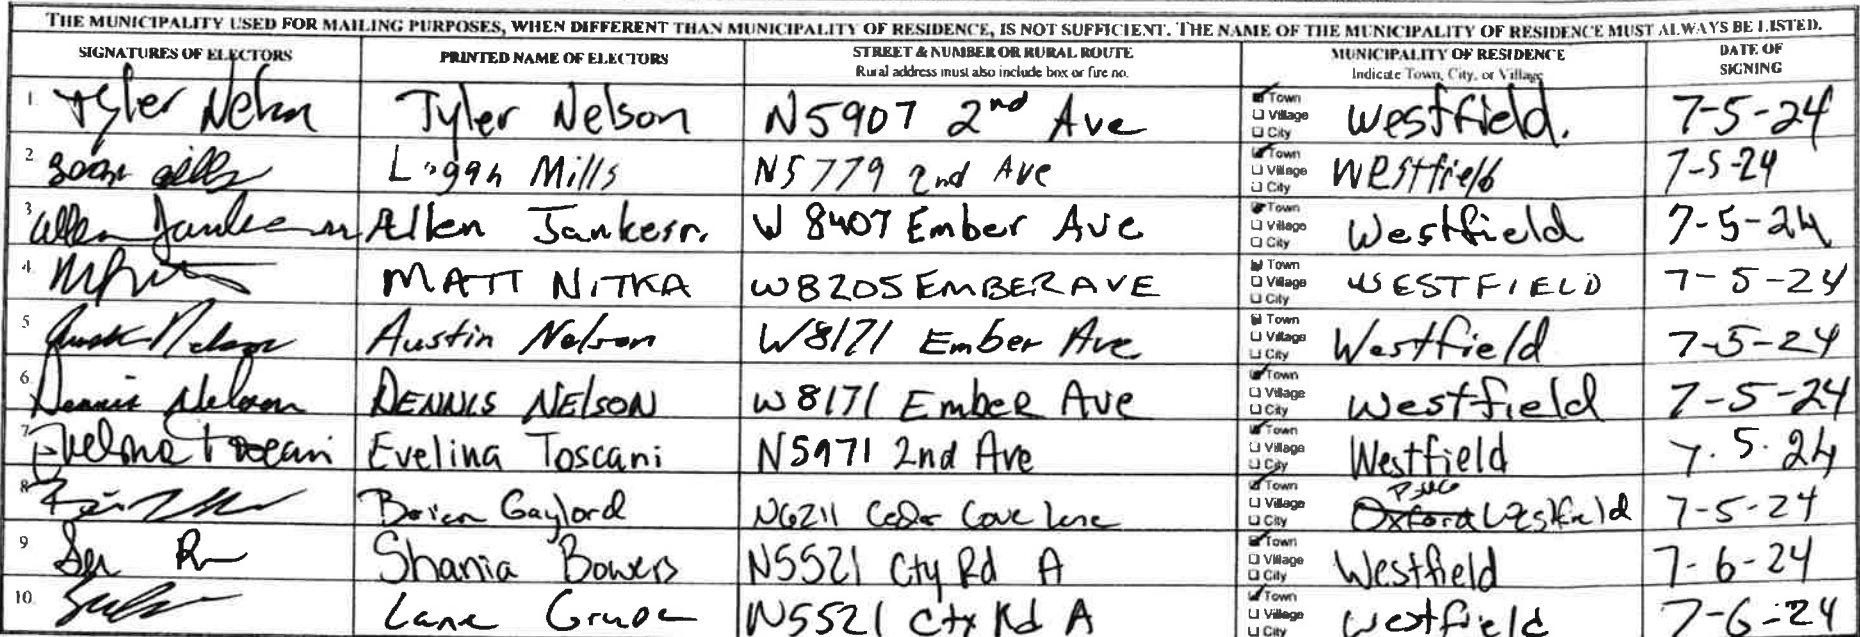 THE MUNICIPALITY USED FOR MAILING PURPOSES, WHEN DIFFERENT THAN MUNICIPALITY OF RESIDENCE, IS NOT SUFFICIENT. THE NAME OF THE MUNICIPALITY OF RESIDENCE MUST ALWAYS BE LISTED.
SIGNATURES OF ELECTORS PRINTED NAME OF ELECTORS STREET & NUMBER OR RURAL ROUTE MUNICIPALITY OF RESIDENCE DATE OF SIGNING
Rural address must also include box or fire no. Indicate Town, City, or Village
1. Tyler Nelson Tyler Nelson N5907 2nd Ave Town Village City Westfield. 7-5-24
2. Logan Mills N5779 2nd Ave Town Village City Westfield 7-5-24
3. Allen Allen W 8407 Ember Ave Town Village City Westfield 7-5-24
4. MATT NITKA W8205 EMBER AVE Town Village City WESTFIELD 7-5-24
5 Austin Nelson Austin Nelson W8171 Ember Ave Town Village City Westfield 7-5-24
6. Dennis Nelson DENNIS NELSON W8171 Ember Ave Town Village City Westfield 7-5-24
7. Evelina Toscani Evelina Toscani N5971 2nd Ave Town Village City Westfield 7.5.24
8 Brian Gaylord N6211 Cedar Cove Lane Town Village City Oxford Westfield 7-5-24
9 Shania Bowers N5521 Cty Rd A Town Village City Westfield 7-6-24
10. Lane N5521 Cty Rd A Town Village City Westfield 7-6-24